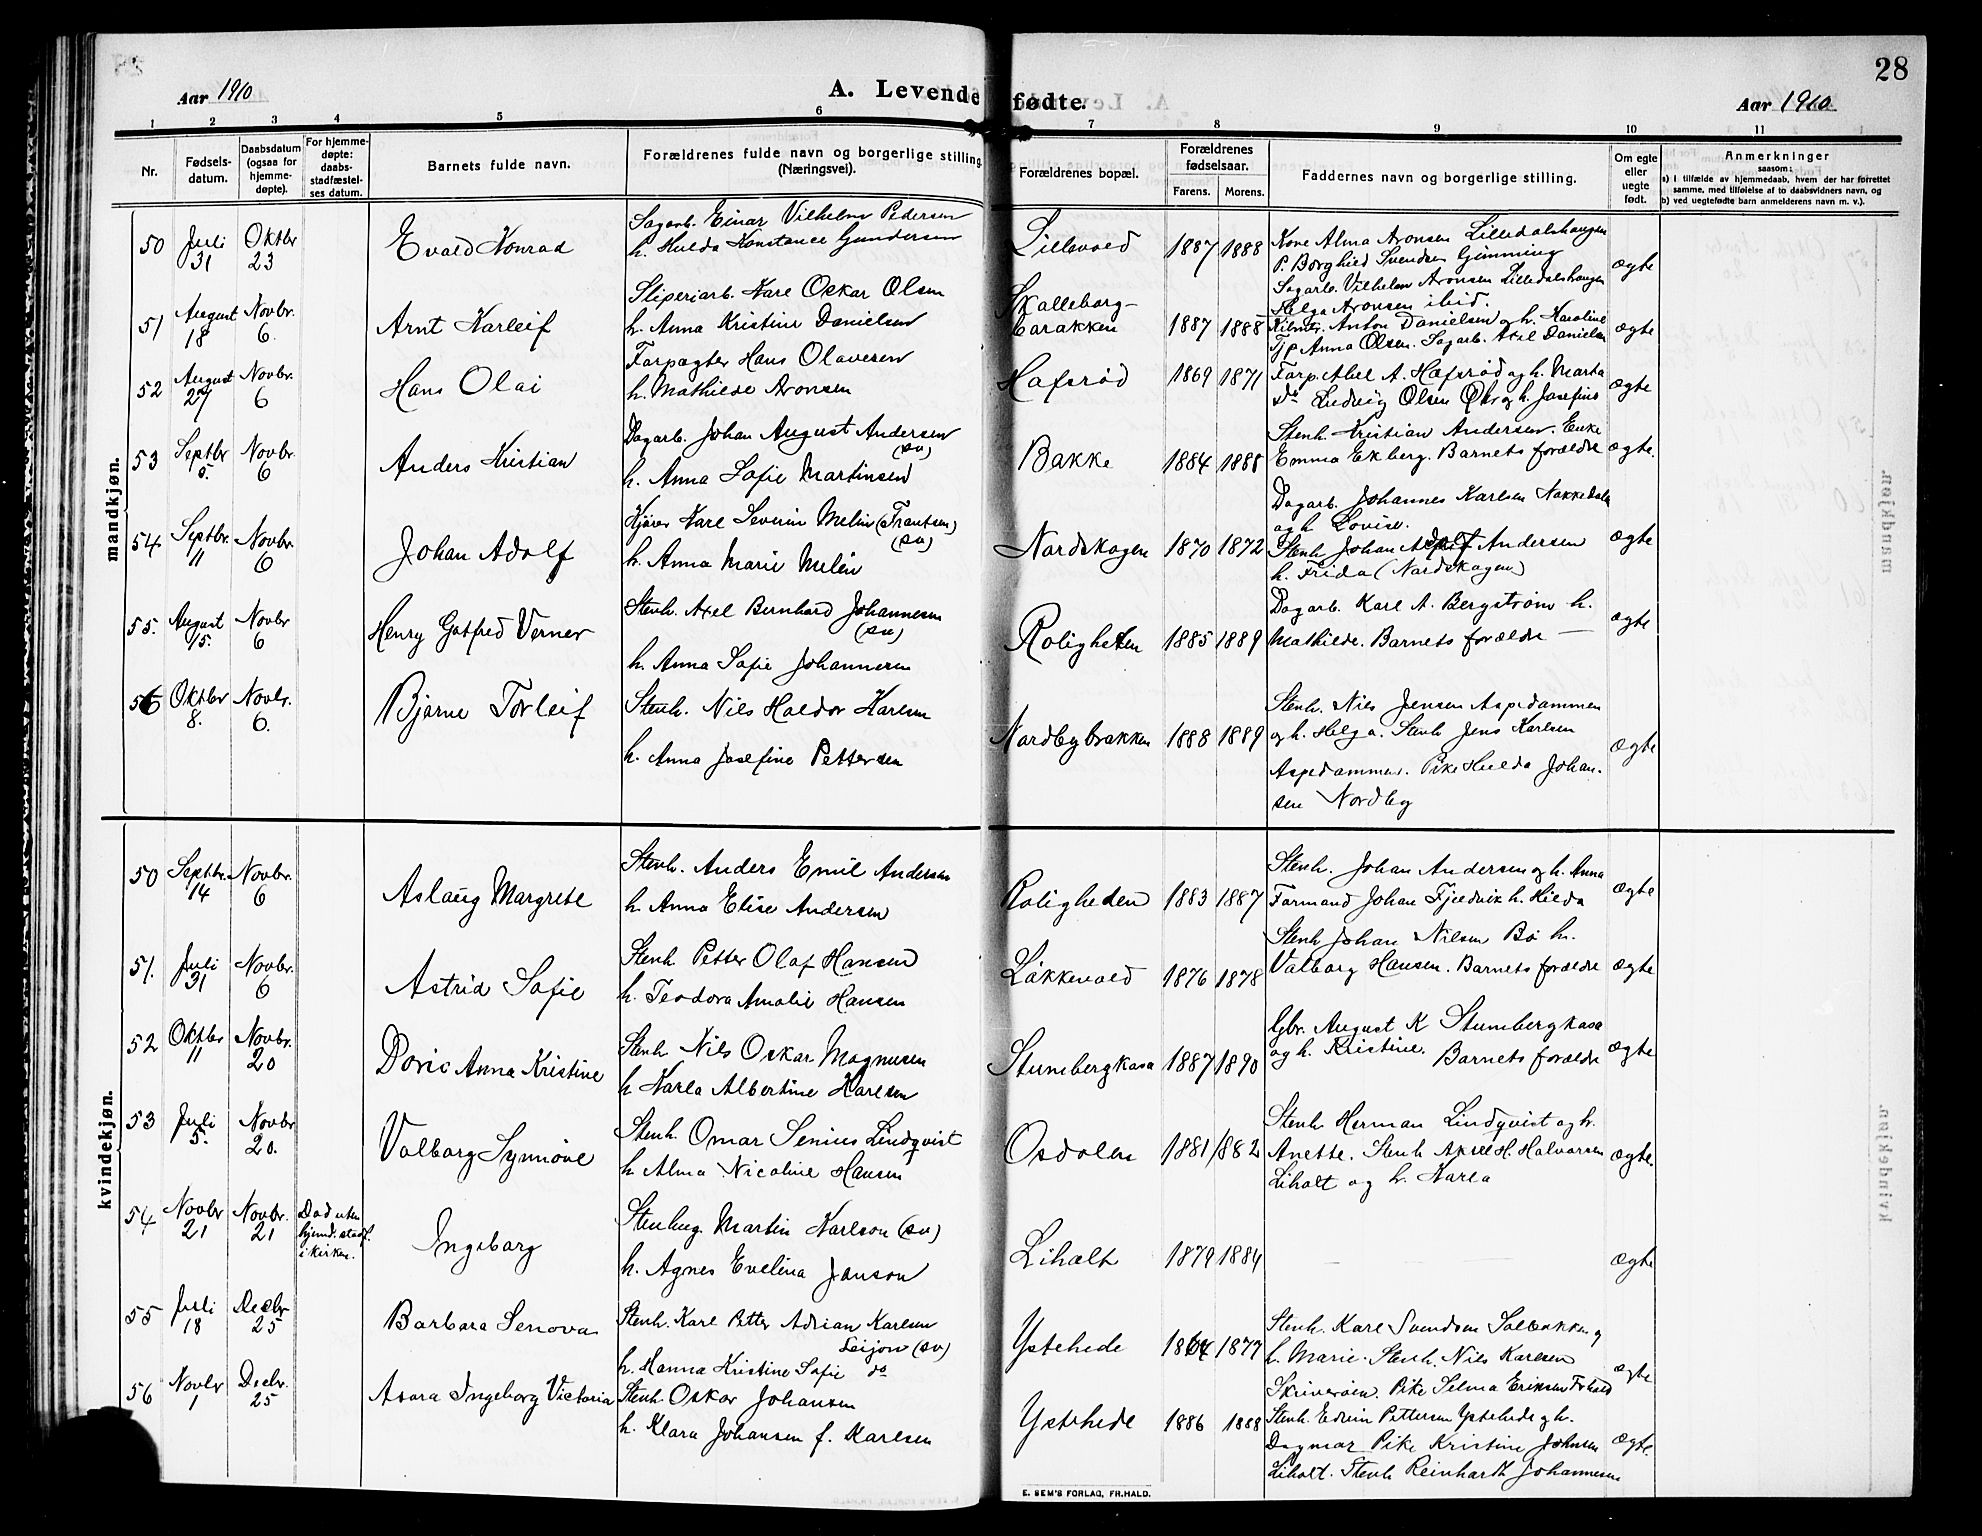 28
Aar 1910
A. Levende fødte.
Aar 1910
1 2 3 4 5 6 7 8 9 10 11
Nr.
Fødsels-
datum.
Daabsdatum
(ogsaa for
hjemme-
døpte).
For hjemme-
døpte:
daabs-
stadfæstel-
ses datum.
Barnets fulde navn.
Forældrenes fulde navn og borgerlige stilling
(Næringsvei).
Forældrenes bopæl.
Forældrenes
fødselsaar.
Farens. Morens.
Faddernes navn og borgerlige stilling.
Om egte
eller
uegte
født.
Anmerkninger
saasom:
a) i tilfælde av hjemmedaab, hvem der har forrettet
samme, med tilføielse af to daabsvidners navn, og
b) ved uegtefødte barn anmelderens navn m. v.).
mandkjøn.
50 Juli 31 Oktbr 23 Evald Konrad
Sagarb. Einar Vilhelm Pedersen
h. Hulda Konstance Gundersen
Lillevold 1887 1888
Kone Alma Aronsen Lilledalshaugen
P. Borghild Svendsen Gimming
Sagarb. Vilhelm Aronsen Lilledalshaugen
Helga Aronsen ibid.
ægte
51 August 18 Novbr. 6 Arnt Karleif
Sliperiarb. Karl Oskar Olsen
h. Anna Kristine Danielsen
Skalleborg-
barakken 1887 1888
Anton Danielsen og h. Karoline
Tjp Anna Olsen. Sagarb. Axel Danielsen
ægte
52 August 27 Novbr. 6 Hans Olai
Forpagter Hans Olavesen
h. Mathilde Aronsen
Hafsrød 1869 1871
Forp. Abel A. Hafsrød og h. Marta
do Ludvig Olsen og h. Josefine
ægte
53 Septbr 5. Novbr. 6 Anders Kristian
Dagarb. Johan August Andersen
(sv)
h. Anna Sofie Martinsen
Bakke 1884 1888
Stenh. Kristian Andersen. Enke
Emma Ekberg. Barnets forældre
ægte.
54 Septbr. 11 Novbr. 6 Johan Adolf
Kjører Karl Severin Melin (Frantsen)
(sv)
h. Anna Marie Melin
Nordskogen 1870 1872
Dagarb. Johannes Karlsen Nakkedalen
og h Lovise.
Stenh Johan Adolf Andersen
h. Frida (Nordskogen)
ægte
55. August 15. Novbr 6 Henry Gotfred Verner
Stenh. Axel Bernhard Johannesen
(sv)
h. Anna Sofie Johannesen
Roligheten 1885 1889
Dagarb. Karl A. Bergstrøm h.
Mathilde. Barnets forældre —
ægte
56 Oktbr 8. Novbr. 6. Bjarne Torleif
Stenh. Nils Haldor Karlsen
h. Anna Josefine Pettersen
Nordbybrakken 1888 1889
Stenh. Nils Jensen Aspedammen
og h. Helga. Stenh Jens Karlsen
Aspedammen. Pike Hulda Johan-
sen Nordby
ægte
kvindekjøn.
50 Septbr. 14 Novbr. 6 Aslaug Margrete
Stenh. Anders Emil Andersen
h. Anna Elise Andersen
Roligheden 1883 1887
Stenh. Johan Andersen og h. Anna
Formand Johan Fjeldvik h. Hilda
ægte
51. Juli 31 Novbr. 6 Astrid Sofie
Stenh Petter Olaf Hansen
h. Teodora Amalie Hansen
Løkkevold 1876 1878
Stenh Johan Nilsen Bø h.
Valborg Hansen. Barnets forældre
ægte
52 Oktbr 11 Novbr. 20 Doris Anna Kristine
Stenh Nils Oskar Magnusen
h Karla Albertine Karlsen
Stumbergkasa 1887 1890
Gbr. August K Stumbergkasa
og h. Kristine. Barnets forældre
ægte
53 Juli 5. Novbr 20. Valborg Synnøve
Stenh. Omar Senius Lindqvist
h Alma Nicoline Hansen
Osdalen 1881 1882
Stenh Herman Lindqvist og h.
Anette. Stenh Aksel H. Halvorsen
Liholt og h. Karla
ægte.
54 Novbr 21 Novbr. 21 Død uten
hjemd. stadf.
i kirken.
Ingeborg
Stenhug. Martin Karlson (sv)
h. Agnes Evelina Janson
Liholt 1879 1884
ægte
55 Juli 18 Decbr 25 Barbara Senova
Stenh. Karl Petter Adrian Karlsen
Leijon (sv)
h. Hanna Kristine Sofie do
Ystehede 1864 1877
Stenh. Karl Svendsen Solbakken og
h. Marie. Stenh. Nils Karlsen
Skriverøen. Pike Selma Eriksen
ægte
56 Novbr 1 Decbr. 25 Asora Ingeborg Victoria
Stenh Oskar Johansen
h. Klara Johansen f. Karlsen
Ystehede 1886 1888
Stenh. Edvin Pettersen Ystehede og h.
Dagmar Pike Kristine Johnsen
Liholt. Stenh Reinhardt Johannesen
ægte.
E. SEM'S FORLAG, FR.HALD.